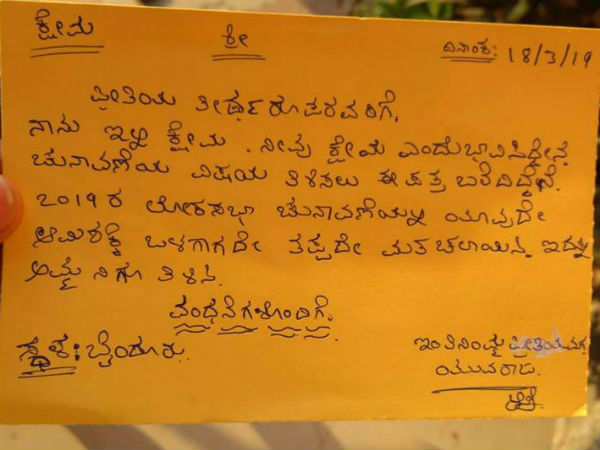 ಕ್ಷೇಮ ಶ್ರೀ ದಿನಾಂಕ: 18/3/19
ಪ್ರೀತಿಯ ತೀರ್ಥರೂಪರವರಿಗೆ,
ನಾನು ಇಲ್ಲಿ ಕ್ಷೇಮ. ನೀವು ಕ್ಷೇಮ ಎಂದು ಭಾವಿಸಿದ್ದೇನೆ.
ಚುನಾವಣೆಯ ವಿಷಯ ತಿಳಿಸಲು ಈ ಪತ್ರ ಬರೆದಿದ್ದೇನೆ.
೨೦೧೯ರ ಲೋಕಸಭಾ ಚುನಾವಣೆಯಲ್ಲಿ ಯಾವುದೇ
ಆಮಿಶಕ್ಕೆ ಒಳಗಾಗದೇ ತಪ್ಪದೇ ಮತ ಚಲಾಯಿಸಿ. ಇದನ್ನು
ಅಮ್ಮನಿಗೂ ತಿಳಿಸಿ.
ವಂದನೆಗಳೊಂದಿಗೆ.
ಸ್ಥಳ: ಬೈಂದೂರು. ಇಂತಿ ನಿಮ್ಮ ಪ್ರೀತಿಯ ಮಗ
ಯುವರಾಜ.